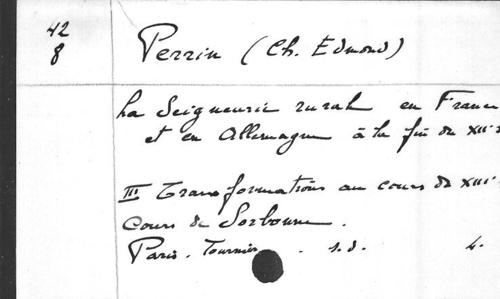 42
8
Perrin (Ch. Edmond)
La Seigneurie rurale en France
et en Allemagne à la fin du XIIe
III Transformations au cours du XIIIe
Cours de Sorbonne.
Paris. Tournier. s.d. 4.